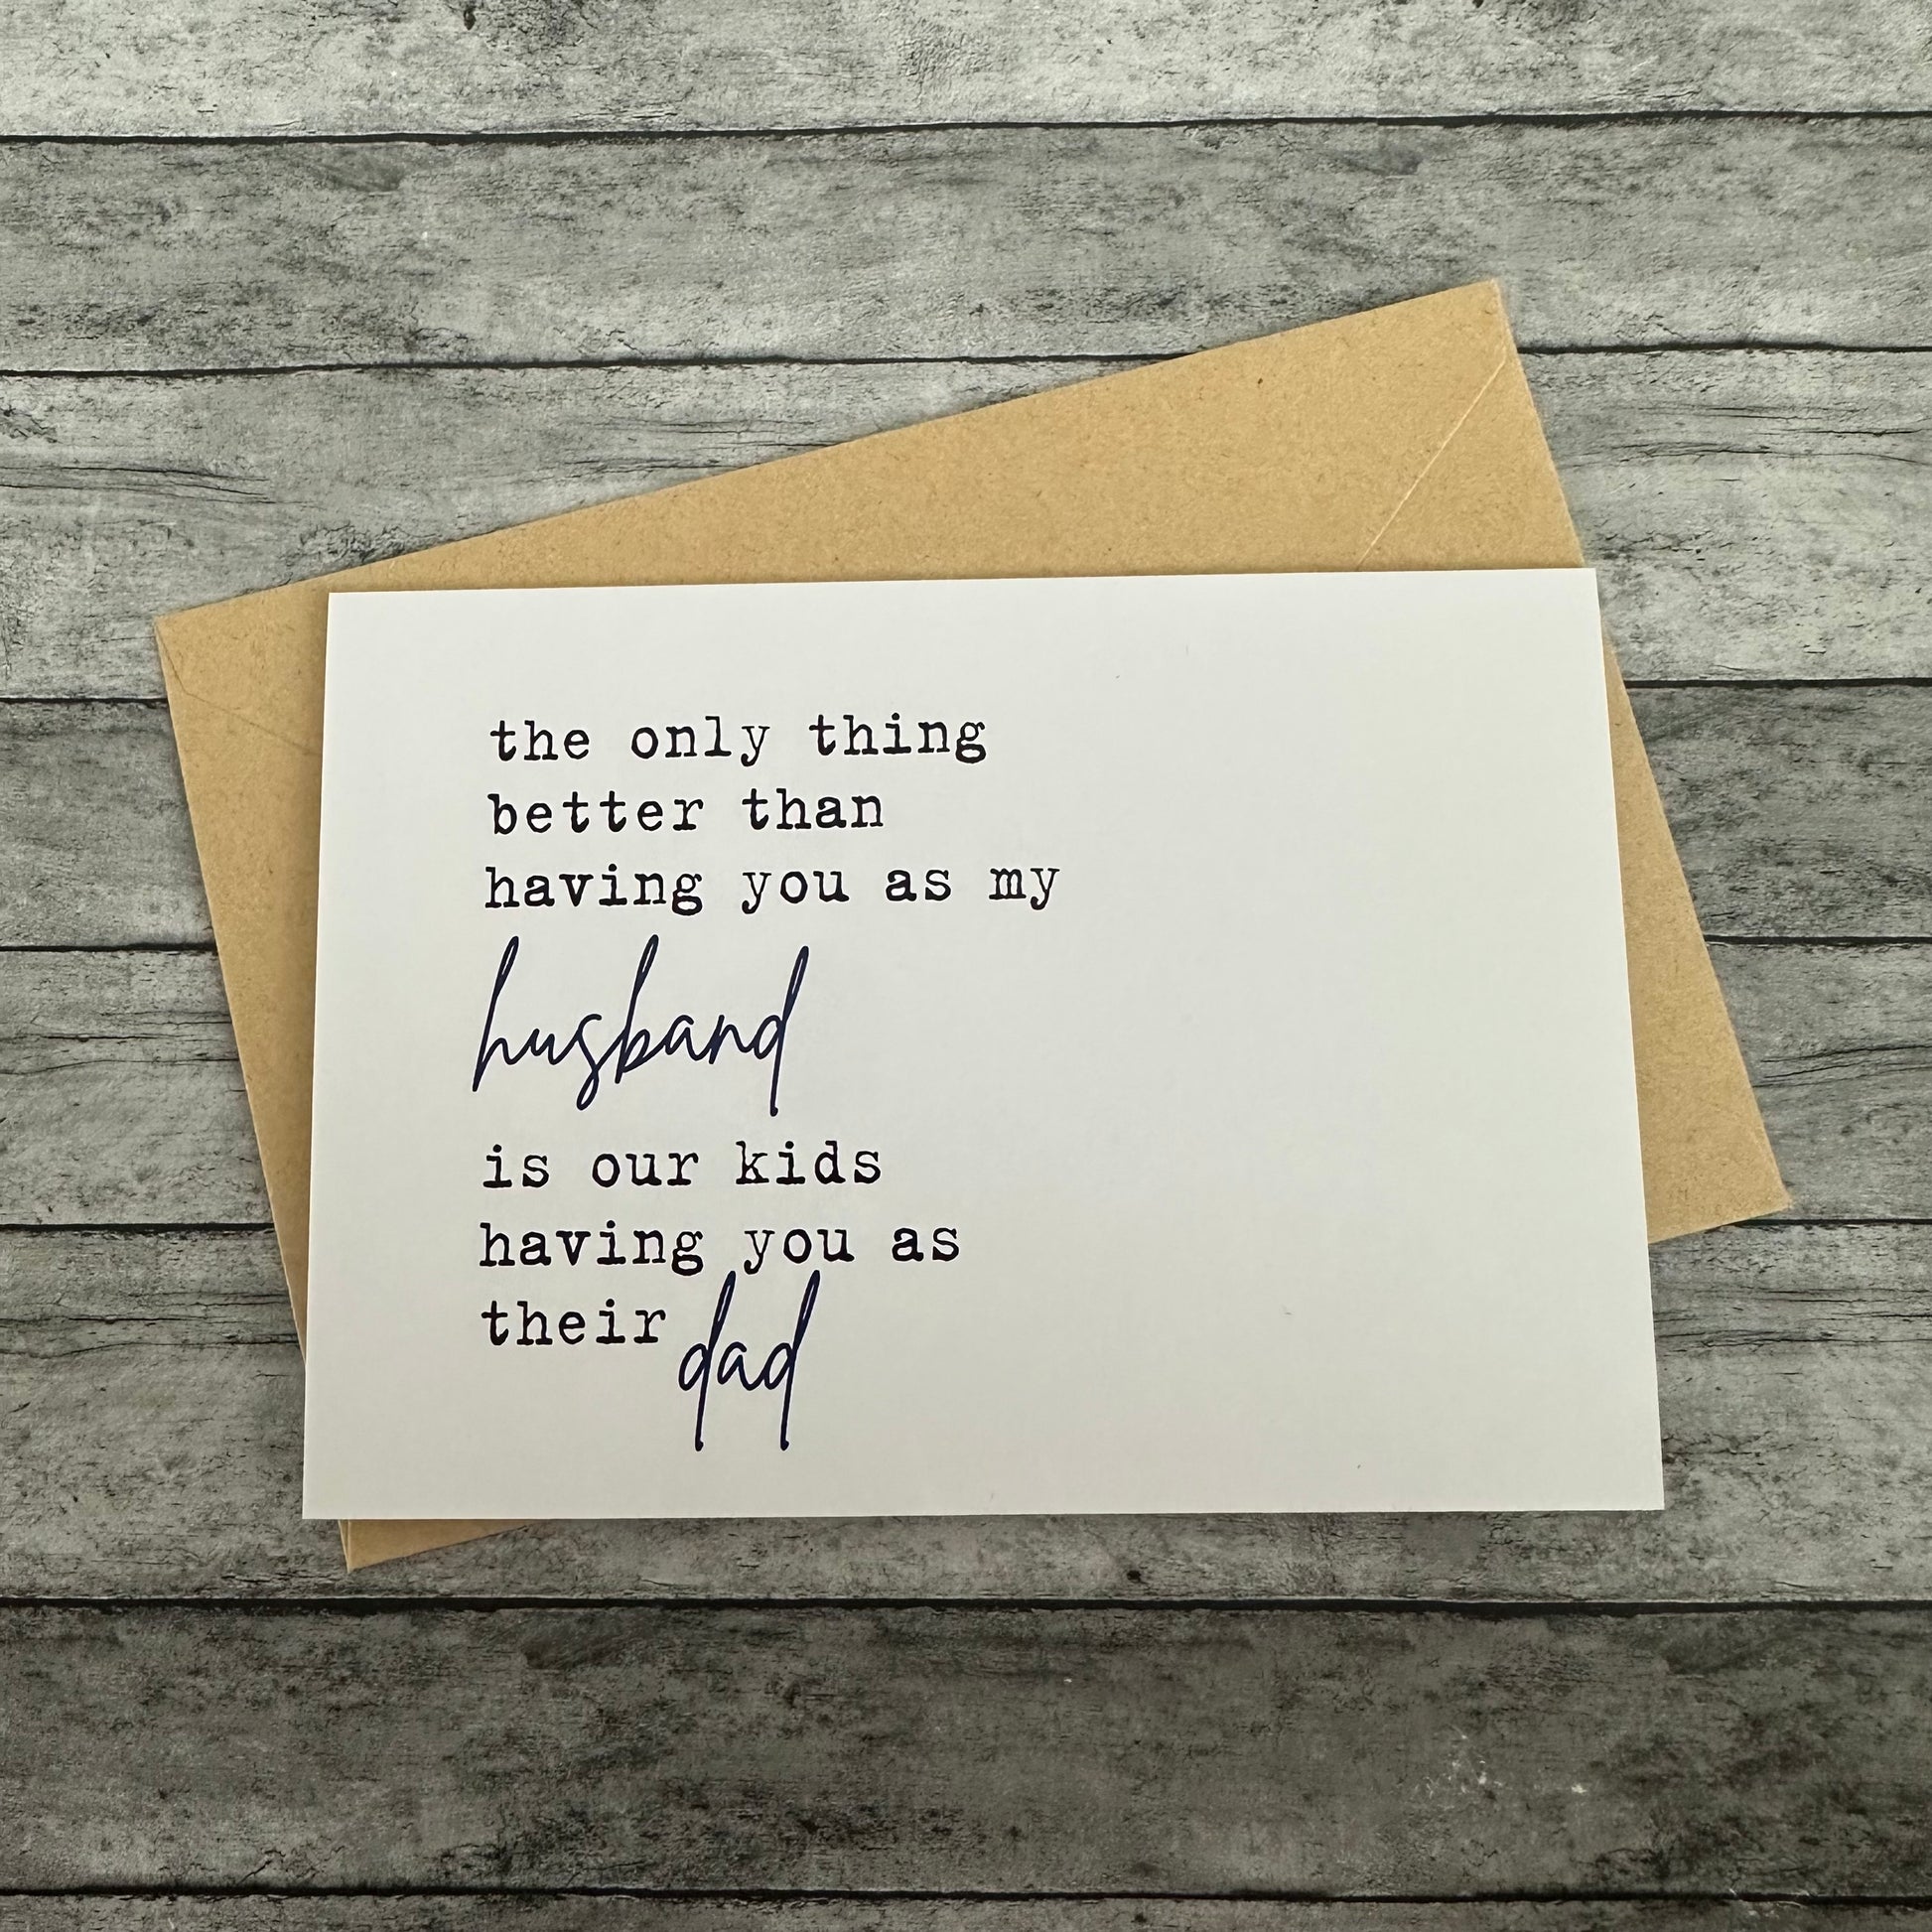 the only thing
better than
having you as my
husband
is our kids
having you as
their dad